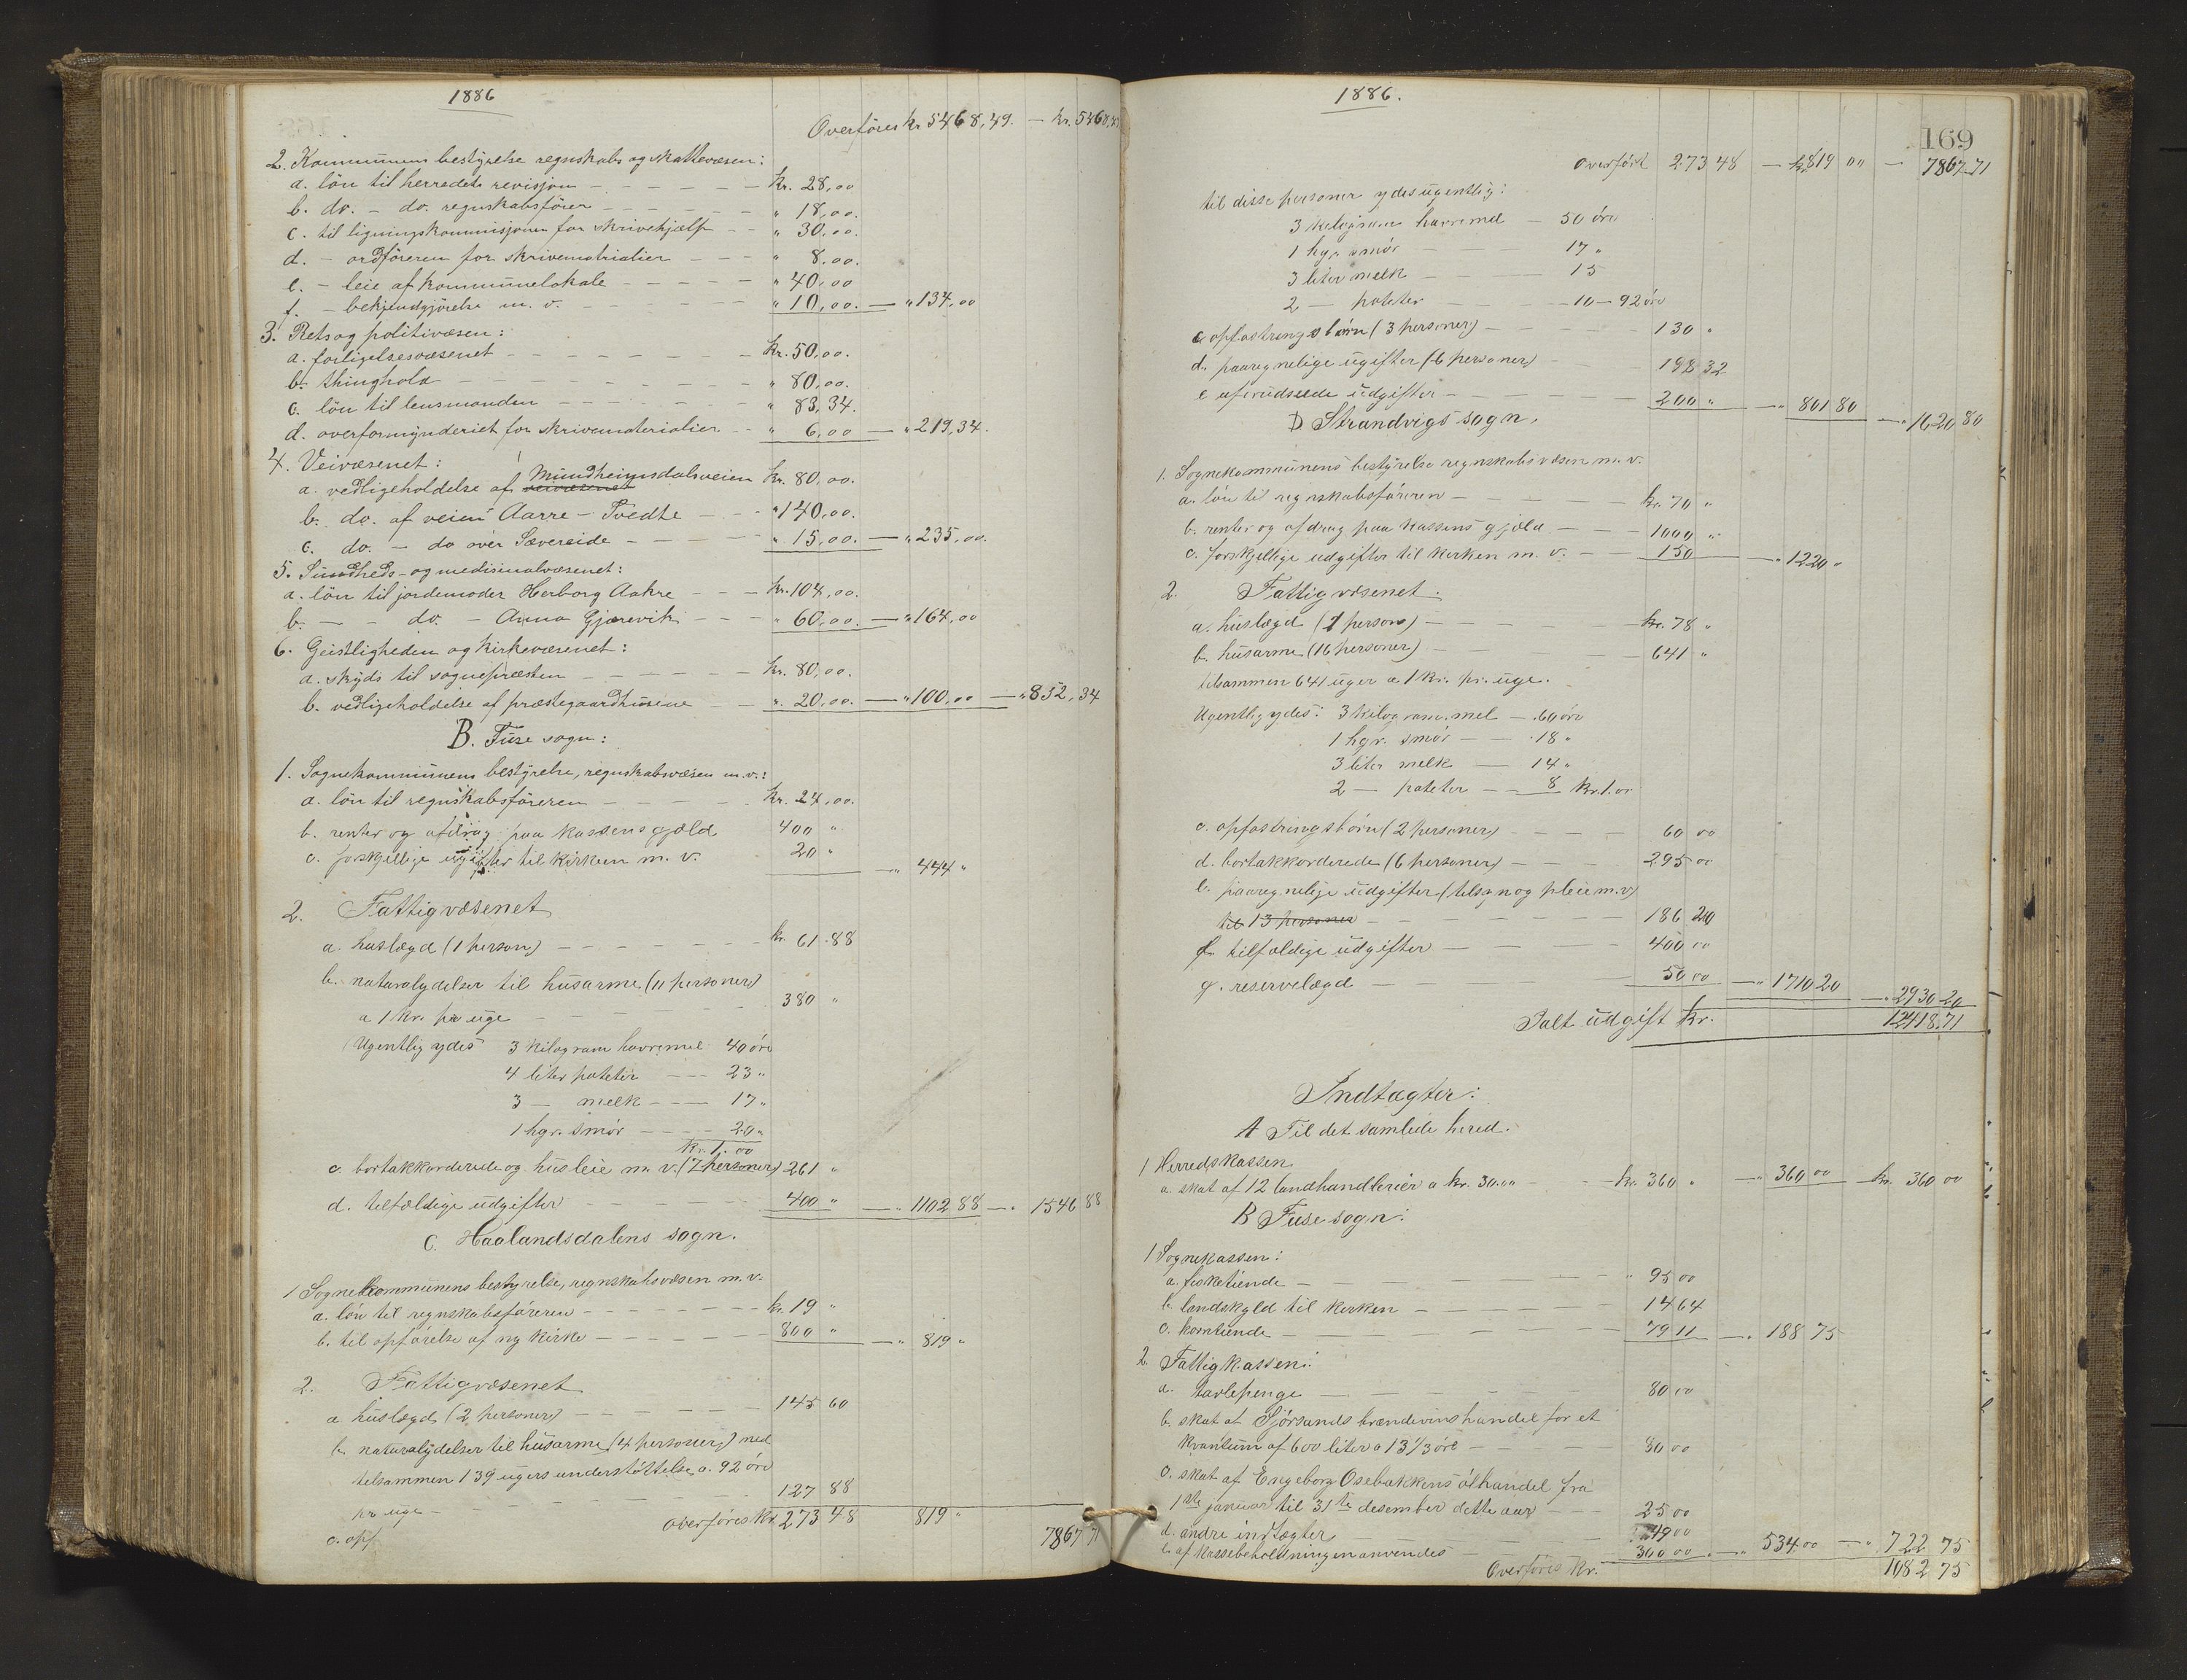 1886
Overføres kr 5468,49. — kr. 5468,49
2. Kommunens bestyrelse regnskabs og skattevæsen:
a. løn til herredets revisjon — kr. 28,00
b. do. — do. regnskabsfører — " 18,00.
c. til ligningskommisjonen for skrivehjælp — " 30,00.
d. — ordføreren for skrivematrialier — " 8,00.
e. — leie af kommunelokale — " 40,00
f. — bekjendtgjørelse m. v. — " 10,00. — " 134,00
3. Rets og politivæsen:
a. forligelsesvæsenet — kr. 50,00.
b. thinghold — " 80,00.
c. løn til lensmanden — " 83,34.
d. overformynderiet for skrivematerialier — " 6,00 — " 219,34.
4. Veivæsenet:
a. vedligeholdelse af veivæsenet Mundheimsdalsveien kr. 80,00.
b. do. af veien Aarre — Tvedte — " 140,00.
c. do. — do over Sævereide — " 15,00. — " 235,00.
5. Sundheds- og medisinalvæsenet:
a. løn til jordemoder Herborg Aakre — kr. 104,00.
b. — do. — Anna Gjærevik — " 60,00. — " 164,00
6. Geistligheden og kirkevæsenet:
a. skyds til sognepræsten — kr. 80,00.
b. vedligeholdelse af præstegaardhusene — " 20,00. — " 100,00 — " 852,34
B. Fuse sogn:
1. Sognekommunens bestyrelse, regnskabsvæsen m. v.:
a. løn til regnskabsføreren — kr. 24,00.
b. renter og afdrag paa kassens gjæld 400 "
c. forskjellige ugifter til kirken m. v. 20 " — " 444 "
2. Fattigvæsenet
a. huslægd (1 person) — kr. 61.88
b. naturalydelser til husarme (11 personer)
a 1 kr. pr uge — 380 "
Ugentlig ydes 3 kilogram havremel 40 øre
4 liter poteter — 23 "
3 — melk — 17 "
1 hgr. smør — 20 "
kr. 1.00
c. bortakkorderede og husleie m. v. (7 personer) 261 "
d. tilfældige udgifter — 400 " — " 1102 88 — " 1546 88
C. Haalandsdalens sogn.
1 Sognekommunens bestyrelse, regnskabsvæsen m. v.
a. løn til regnskabsføreren — kr. 19 "
b. til opførelse af ny kirke — 800 " — " 819 "
2. Fattigvæsenet
a huslægd (2 personer) — 145 60
b. naturalydelser til husarme (4 personer) med
tilsammen 139 ugers understøttelse a. 92 øre
pr uge — 127 88
c. opf
overføres kr. 273 48 819 " 7867 71
1886.
169
Overført 273 48 — kr. 819 00 — 7867.71
til disse personer ydes ugentlig:
3 kilogram havremel — 50 øre
1 hgr. smør — 17 "
3 liter melk — 15
2 — poteter — 10 — 92 øre
c opfostringsbørn (3 personer) — 130 "
d. paaregnelige ugifter (6 personer) — 198 32
e uforudseede udgifter — 200 " — " 801 80 — " 1620 80
D Strandvigs sogn.
1. Sognekommunens bestyrelse regnskabsvæsen m. v.
a. løn til regnskabsføreren — kr. 70 "
b. renter og afdrag paa kassens gjæld — 1000 "
c. forskjellige udgifter til kirken m. v. — 150 — " 1220 "
2. Fattigvæsenet.
a. huslægd (1 person) — kr. 78 "
b. husarme (16 personer) — 641 "
tilsammen 641 uger a 1 kr. pr. uge.
Ugentlig ydes: 3 kilogram. mel — 60 øre
1 hgr. smør — 18 "
3 liter melk — 14 "
2 — poteter — 8 kr. 1.00
c. opfostringsbørn (2 personer) — 60 00
d. bortakkorderede (6 personer) — 295 00
e. paaregnelige udgifter (tilsyn og pleie m. v)
til 13 personer — 186 20
f. tilfældige udgifter — 400 00
g. reservelægd — 50 00 — " 1710 20 — " 2930 20
Ialt udgift kr. 12418.71
Indtægter:
A Til det samlede hered.
1 Herredskassen
a. skat af 12 landhandlerier a kr. 30.00 — kr. 360 " — " 360 00 — kr. 360 00
B Fuse sogn:
1 Sognekassen:
a. fisketiende — " 95 00
b. landskyld til kirken — 14 64
c. korntiende — 79 11 — " 188 75
2. Fattigkassen:
a. tavlepenge — 80 00
b. skat af Sjørsands brændevinshandel for et
kvantum af 600 liter a 13 1/3 øre — 80 00
c. skat af Engeborg Osebakkens ølhandel fra
1ste januar til 31te desember dette aar — 25 00
d. andre indtægter — 49 00
e. af kassebeholdningen anvendes — 300 00 — " 534.00 — " 722 75
Overføres kr. 1082 75